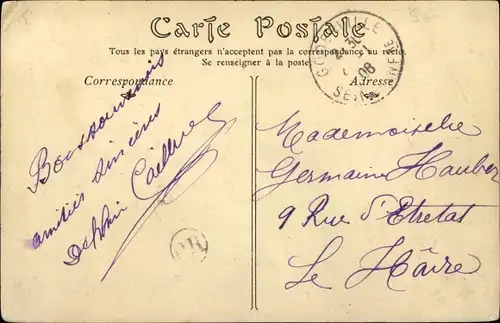 Carte Postale
Tous les pays étrangers n'acceptent pas la correspondance au recto.
Se renseigner à la poste.
Correspondance
Adresse
GODERVILLE
08
SEINE INFRE
Bons souvenirs
amitiés sincères
Mademoiselle
Germaine Hauber
9 Rue d'Etretat
Le Hâvre